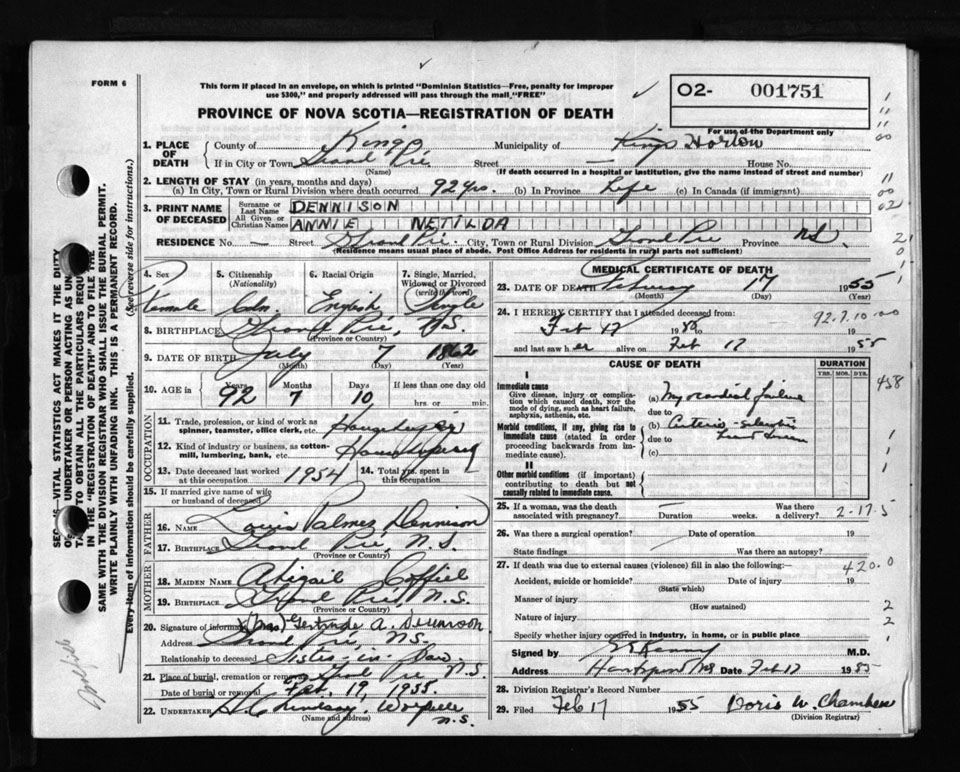 FORM 6
This form if placed in an envelope, on which is printed "Dominion Statistics—Free, penalty for improper
use $300," and properly addressed will pass through the mail "FREE"
O2- 001751
PROVINCE OF NOVA SCOTIA—REGISTRATION OF DEATH
For use of the Department only
1. PLACE OF DEATH
County of Kings Municipality of Kings Horton
If in City or Town Grand Pré Street — House No.
(Name) (If death occurred in a hospital or institution, give the name instead of street and number)
2. LENGTH OF STAY (in years, months and days)
(a) In City, Town or Rural Division where death occurred 92 yrs. (b) In Province Life (c) In Canada (if immigrant)
3. PRINT NAME OF DECEASED
Surname or Last Name DENNISON
All Given or Christian Names ANNIE NETILDA
RESIDENCE No. — Street Grand Pré. City, Town or Rural Division Grand Pré Province N.S.
(Residence means usual place of abode. Post Office Address for residents in rural parts not sufficient)
4. Sex Female
5. Citizenship (Nationality) Cdn.
6. Racial Origin English
7. Single, Married, Widowed or Divorced (write the word) Single
8. BIRTHPLACE Grand Pré, N.S.
(Province or Country)
9. DATE OF BIRTH July 7 1862
(Month) (Day) (Year)
10. AGE in Years 92 Months 7 Days 10 If less than one day old
hrs. or min.
OCCUPATION
11. Trade, profession, or kind of work as
spinner, teamster, office clerk, etc. Housekeeper
12. Kind of industry or business, as cotton-
mill, lumbering, bank, etc. Housekeeping
13. Date deceased last worked at this occupation 1954 14. Total yrs. spent in this occupation
15. If married give name of wife
or husband of deceased
FATHER
16. NAME Louis Palmer Dennison
17. BIRTHPLACE Grand Pré N.S.
(Province or Country)
MOTHER
18. MAIDEN NAME Abigail
19. BIRTHPLACE Pré, N.S.
(Province or Country)
20. Signature of informant (Mrs) Gertrude A. Dennison
Address Grand Pré, N.S.
Relationship to deceased Sister-in-law
21. Place of burial, cremation or removal Grand Pré N.S.
Date of burial or removal Feb. 19, 1955.
22. UNDERTAKER Lindsay, Wolfville N.S.
(Name and address)
MEDICAL CERTIFICATE OF DEATH
23. DATE OF DEATH February 17 1955
(Month) (Day) (Year)
24. I HEREBY CERTIFY that I attended deceased from:
Feb 17 to 92.7.10.00
and last saw her alive on Feb 17 1955
CAUSE OF DEATH
DURATION
YRS. MOS. DYS.
458
I
Immediate cause
Give disease, injury or complica-
tion which caused death, not the
mode of dying, such as heart failure,
asphyxia, asthenia, etc.
(a) Myocardial failure
due to
Morbid conditions, if any, giving rise to
immediate cause (stated in order
proceeding backwards from im-
mediate cause).
(b) Arterio-sclerotic
due to Heart Disease
(c)
II
Other morbid conditions (if important)
contributing to death but not
causally related to immediate cause.
25. If a woman, was the death
associated with pregnancy? Duration weeks. Was there
a delivery? 2-17-5
26. Was there a surgical operation? Date of operation 19
State findings Was there an autopsy?
27. If death was due to external causes (violence) fill in also the following: 420.0
Accident, suicide or homicide? Date of injury 19
(State which)
Manner of injury
(How sustained)
Nature of injury
Specify whether injury occurred in industry, in home, or in public place
Signed by M.D.
Address Hantsport NS Date Feb 17 1955
28. Division Registrar's Record Number
29. Filed Feb 17 1955 Doris W. Chambers
(Division Registrar)
VITAL STATISTICS ACT MAKES IT THE DUTY
OF UNDERTAKER OR PERSON ACTING AS
TO OBTAIN ALL THE PARTICULARS
IN THE "REGISTRATION OF DEATH" AND TO FILE THE
SAME WITH THE DIVISION REGISTRAR WHO SHALL ISSUE THE BURIAL PERMIT.
WRITE PLAINLY WITH UNFADING INK. THIS IS A PERMANENT RECORD.
Every item of information should be carefully supplied. (See reverse side for instructions.)